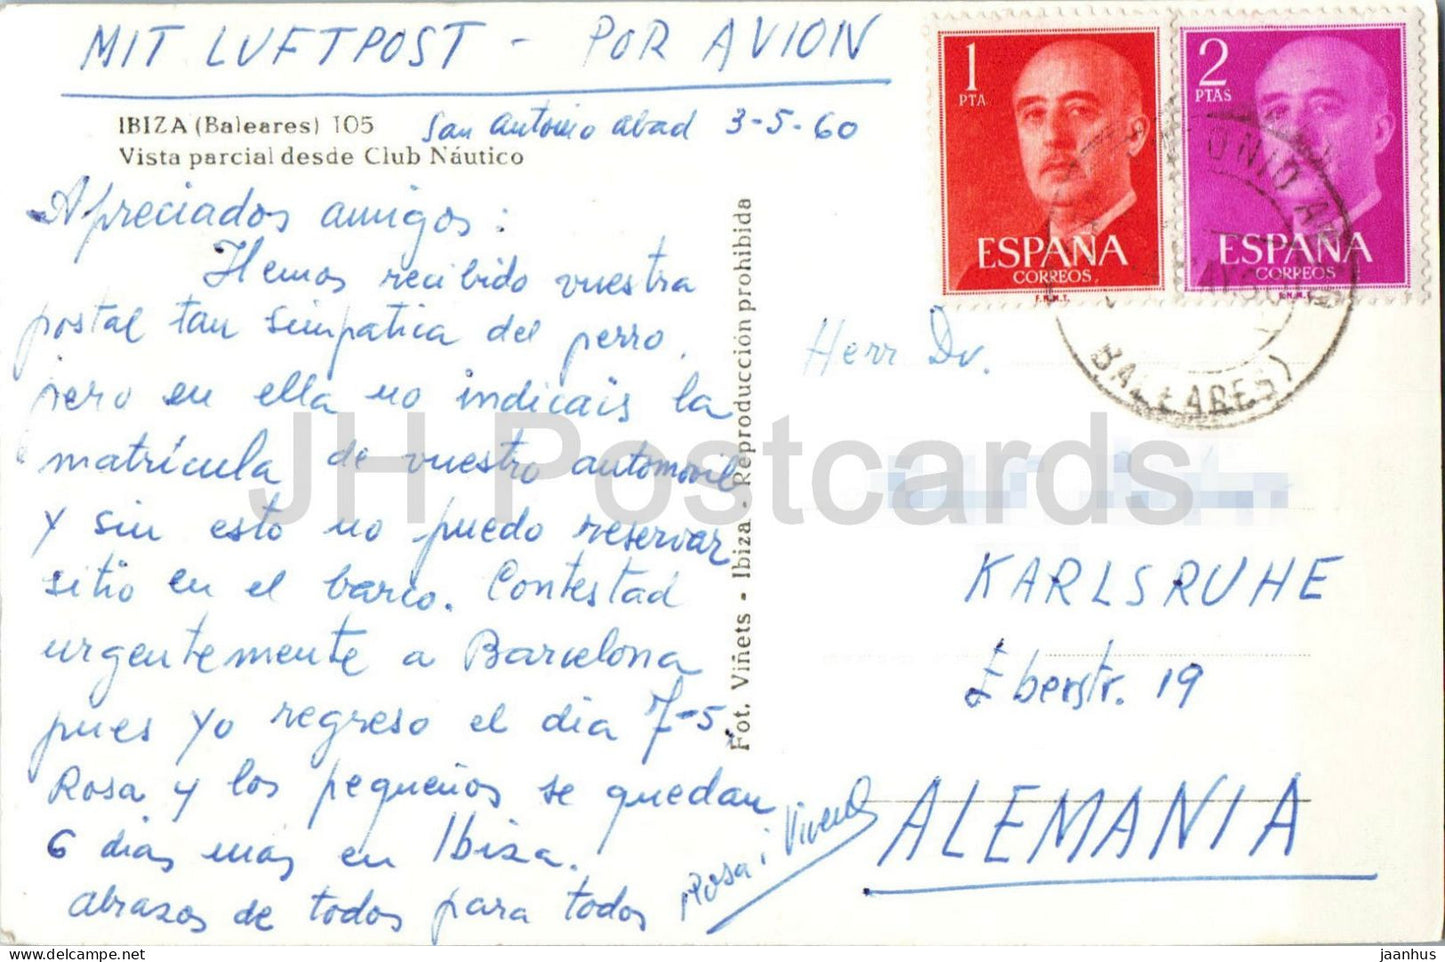 MIT LUFTPOST - POR AVION
IBIZA (Baleares) 105
Vista parcial desde Club Náutico
San Antonio Abad 3-5-60
Apreciados amigos:
Hemos recibido vuestra
postal tan simpatica del perro,
pero en ella no indicáis la
matrícula de vuestro automovil
y sin esto no puedo reservar
sitio en el barco. Contestad
urgentemente a Barcelona
pues yo regreso el dia 7-5,
Rosa y los pequeños se quedan
6 dias más en Ibiza.
abrazos de todos para todos
Rosa i
Fot. Viñets - Ibiza - Reproducción prohibida
1
PTA
ESPAÑA
CORREOS
F.N.M.T.
2
PTAS
ESPAÑA
CORREOS
F.N.M.T.
BALEARES)
Herr Dr.
KARLSRUHE
Eberstr. 19
ALEMANIA
JH Postcards
jaanhus